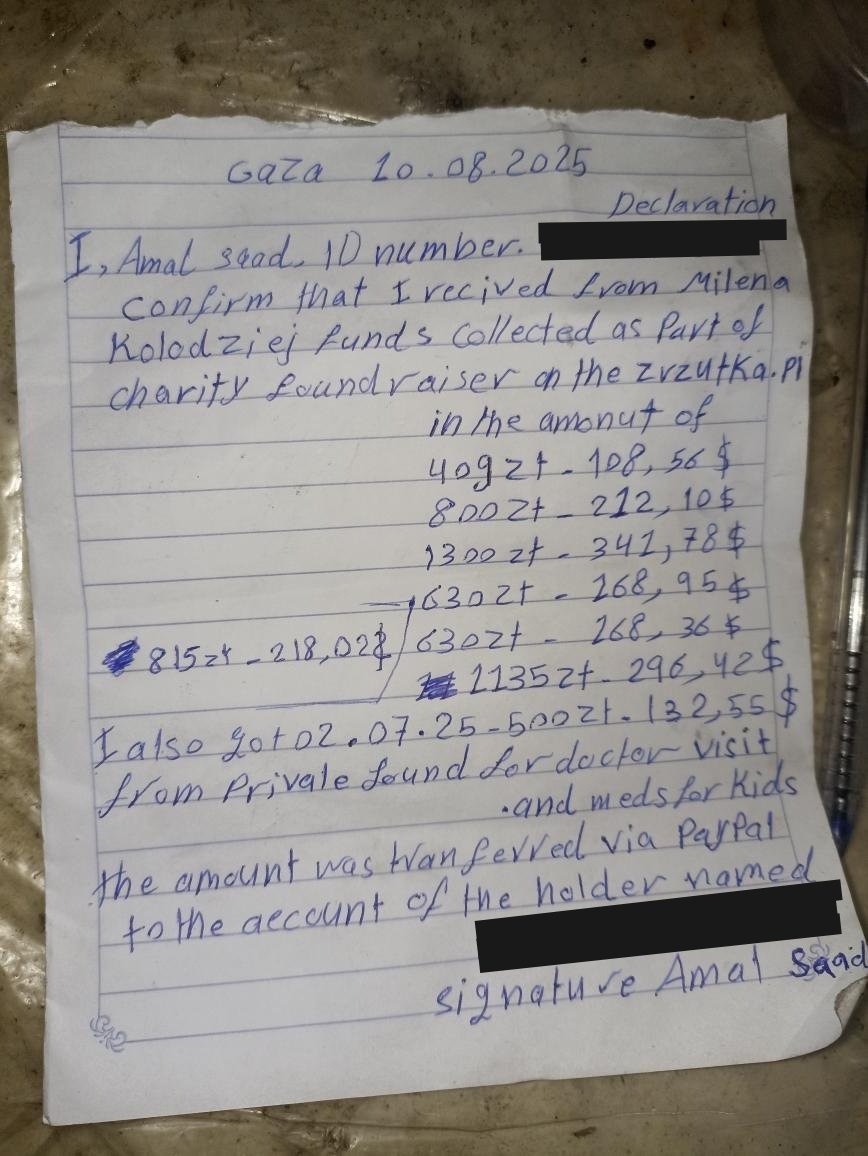 Gaza 10.08.2025
Declaration
I, Amal saad, ID number.
confirm that I recived from Milena
Kolodziej funds collected as Part of
charity foundraiser on the zrzutka.pl
in the amonut of
409 zł - 108,56 $
800 zł - 212,10 $
1300 zł - 341,78 $
630 zł - 168,95 $
815 zł - 218,02 $
630 zł - 168,36 $
1135 zł - 296,42 $
I also got 02.07.25 - 500 zł. 132,55 $
from Private found for doctor visit
.and meds for Kids
the amount was tranferred via PayPal
to the account of the holder named
signature Amal Saad